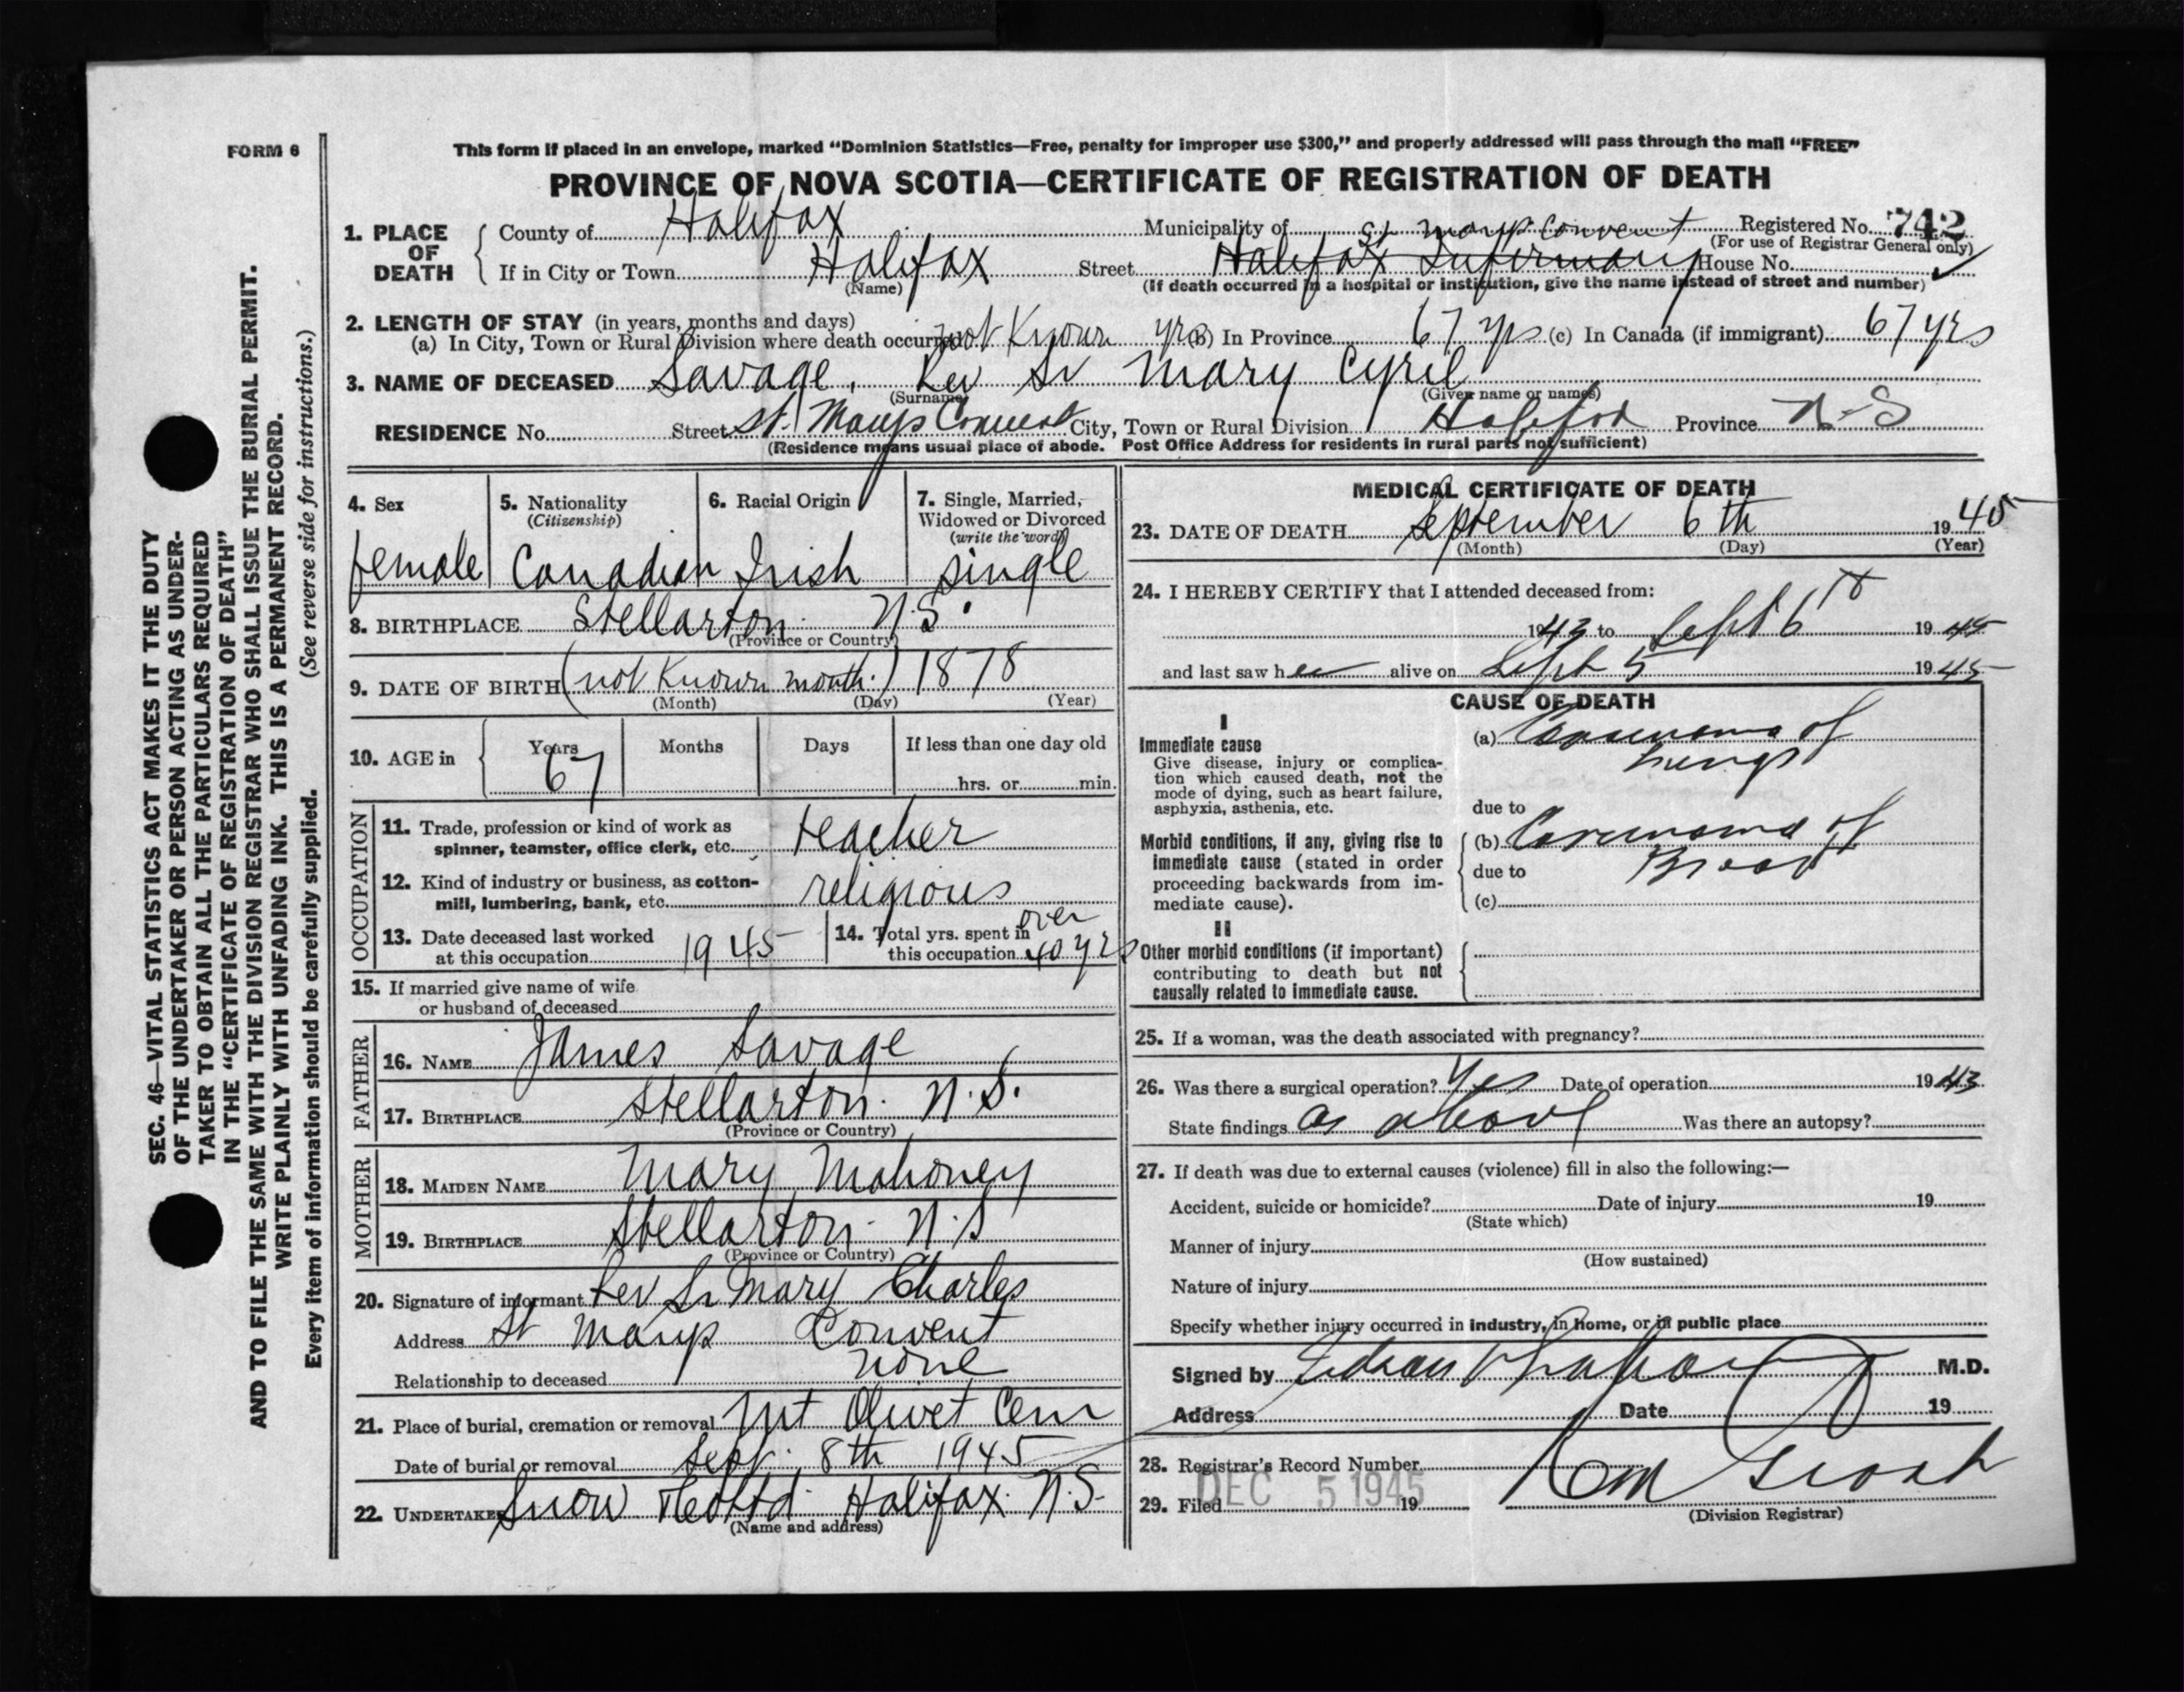 FORM 6
This form if placed in an envelope, marked “Dominion Statistics—Free, penalty for improper use $300,” and properly addressed will pass through the mail “FREE”
PROVINCE OF NOVA SCOTIA—CERTIFICATE OF REGISTRATION OF DEATH
1. PLACE OF DEATH
County of Halifax Municipality of St Marys Convent Registered No. 742
(For use of Registrar General only)
If in City or Town Halifax Street Halifax Infirmary House No.
(Name) (If death occurred in a hospital or institution, give the name instead of street and number)
2. LENGTH OF STAY (in years, months and days)
(a) In City, Town or Rural Division where death occurred not Known yrs (b) In Province 67 yrs (c) In Canada (if immigrant) 67 yrs
3. NAME OF DECEASED Savage, Rev Sr Mary Cyril
(Surname) (Given name or names)
RESIDENCE No. Street St. Marys Convent City, Town or Rural Division Halifax Province N-S
(Residence means usual place of abode. Post Office Address for residents in rural parts not sufficient)
4. Sex 5. Nationality 6. Racial Origin 7. Single, Married,
(Citizenship) Widowed or Divorced
(write the word)
female Canadian Irish single
8. BIRTHPLACE Stellarton N.S.
(Province or Country)
9. DATE OF BIRTH (not Known month.) 1878
(Month) (Day) (Year)
10. AGE in Years Months Days If less than one day old
67 hrs. or min.
OCCUPATION
11. Trade, profession or kind of work as
spinner, teamster, office clerk, etc. teacher
12. Kind of industry or business, as cotton-
mill, lumbering, bank, etc. religious
13. Date deceased last worked
at this occupation 1945
14. Total yrs. spent in over
this occupation 40 yrs
15. If married give name of wife
or husband of deceased
FATHER
16. NAME James Savage
17. BIRTHPLACE Stellarton. N.S.
(Province or Country)
MOTHER
18. MAIDEN NAME Mary Mahoney
19. BIRTHPLACE Stellarton. N.S
(Province or Country)
20. Signature of informant Rev Sr Mary Charles
Address St Marys Convent
Relationship to deceased none
21. Place of burial, cremation or removal Mt Olivet Cem
Date of burial or removal Sept. 8th 1945
22. UNDERTAKER Snow & Co Ltd. Halifax. N.S.
(Name and address)
MEDICAL CERTIFICATE OF DEATH
23. DATE OF DEATH September 6th 1945
(Month) (Day) (Year)
24. I HEREBY CERTIFY that I attended deceased from:
1943 to Sept 6th 1945
and last saw her alive on Sept 5 1945
CAUSE OF DEATH
I
Immediate cause
Give disease, injury or complica-
tion which caused death, not the
mode of dying, such as heart failure,
asphyxia, asthenia, etc.
(a) Carcinoma of
Lungs
due to
Morbid conditions, if any, giving rise to
immediate cause (stated in order
proceeding backwards from im-
mediate cause).
(b) Carcinoma of
Breast
due to
(c)
II
Other morbid conditions (if important)
contributing to death but not
causally related to immediate cause.
25. If a woman, was the death associated with pregnancy?
26. Was there a surgical operation? Yes Date of operation 1943
State findings as above Was there an autopsy?
27. If death was due to external causes (violence) fill in also the following:—
Accident, suicide or homicide? Date of injury 19
(State which)
Manner of injury
(How sustained)
Nature of injury
Specify whether injury occurred in industry, in home, or in public place
Signed by M.D.
Address Date 19
28. Registrar's Record Number
29. Filed DEC 5 1945 19
(Division Registrar)
SEC. 46—VITAL STATISTICS ACT MAKES IT THE DUTY
OF THE UNDERTAKER OR PERSON ACTING AS UNDER-
TAKER TO OBTAIN ALL THE PARTICULARS REQUIRED
IN THE “CERTIFICATE OF REGISTRATION OF DEATH”
AND TO FILE THE SAME WITH THE DIVISION REGISTRAR WHO SHALL ISSUE THE BURIAL PERMIT.
WRITE PLAINLY WITH UNFADING INK. THIS IS A PERMANENT RECORD.
Every item of information should be carefully supplied. (See reverse side for instructions.)